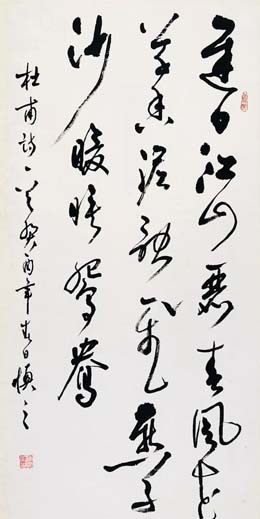 遲日江山麗春風花
草香泥融飛燕子
沙暖睡鴛鴦
杜甫詩一首癸酉年春日慎之